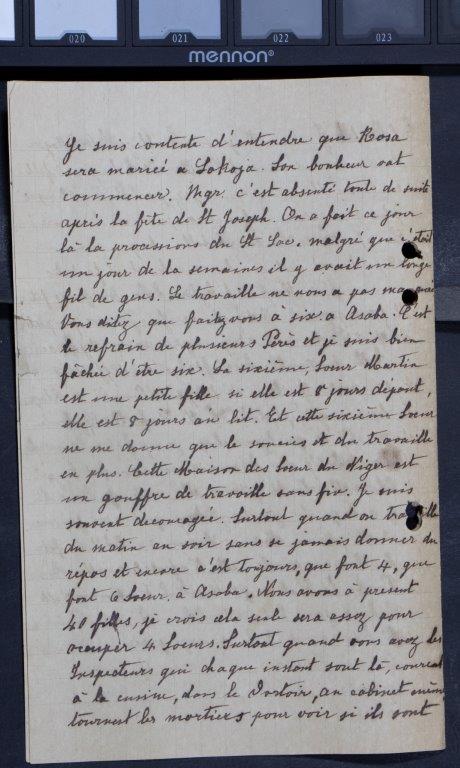 020 021 022 023
mennon®
Je suis contente d'entendre que Rosa
sera mariée a Lokoja. Son bonheur vat
commencer. Mgr. c'est absenté toute de suite
après la fête de St Joseph. On a fait ce jour
là la processions du St Sac. malgré que c'était
un jour de la semaines il y avait un longe
fil de gens. Le travaille ne nous a pas manquée
Vous ditez que faitez vous a six a Asaba. C'est
le refrain de plusseurs Pères et je suis bien
fâchée d'être six. La sixième, Soeur Martin
est une petite fille si elle est 8 jours dépout,
elle est 8 jours au lit. Et cette sixième Soeur
ne me donne que le soucies et du travaille
en plus. Cette Maison des Soeur du Niger est
un gouffre de travaille sans fin. Je suis
souvent decouragée. Surtout quand on travaille
du matin au soir sans se jamais donner du
répos et encore c'est toujours, que font 4, que
font 6 Soeur, à Asaba. Nous avons à present
40 filles, je crois cela seule sera assez pour
occuper 4 Soeurs. Surtout quand vous avez les
Inspecteurs qui chaque instant sont là, courrent
à la cuisine, dans le Dortoir, au cabinet même
tournent les mortiers pour voir si ils sont